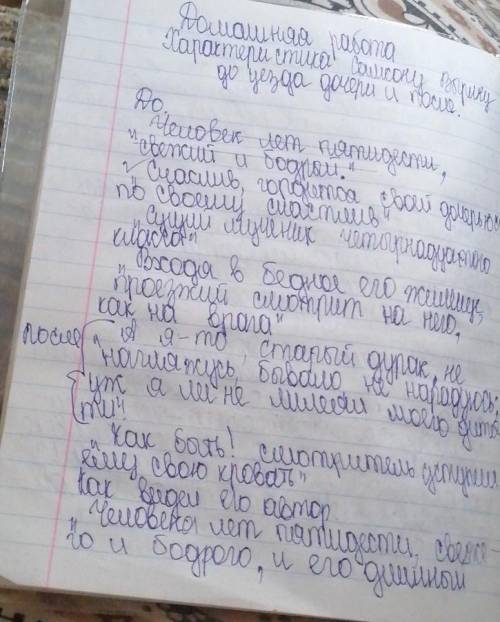 Домашняя работа
Характеристика Самсону Вырину
до уезда дочери и после.
До.
Человек лет пятидести,
"свежий и бодрый."
"Счаслив, гордится своей дочерью
по своему счастлив"
"сущий мученик четырнадцатого
класса"
"Входя в бедное его жилище,
проезжий смотрит на него,
как на врага"
после "А я-то, старый дурак, не
нагляжусь, бывало не нарадуюсь
уж я ли не лилеял моего дитя
ти"
"Как быть! смотритель уступил
ему свою кровать"
Как видел его автор
"Человека лет пятидести, свеже
го и бодрого, и его длинный